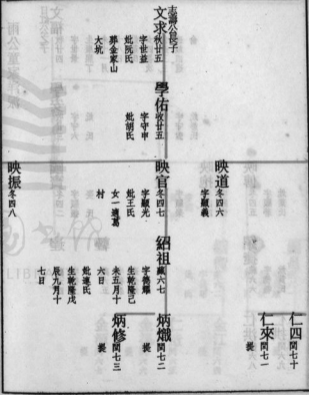 志濤公長子
文求收廿五
字世益
妣阮氏
葬金家山
大坑
學佑收廿五
字守中
妣胡氏
映道冬四六
字顯義
映官冬四七
字顯光
妣王氏
女一適葛
村
映振冬四八
紹祖藏六七
字德耀
生乾隆己
未五月十
六日
妣連氏
生乾隆戊
辰九月十
七日
仁四閏七十
仁來閏七一
提
炳熾閏七二
提
炳修閏七三
提